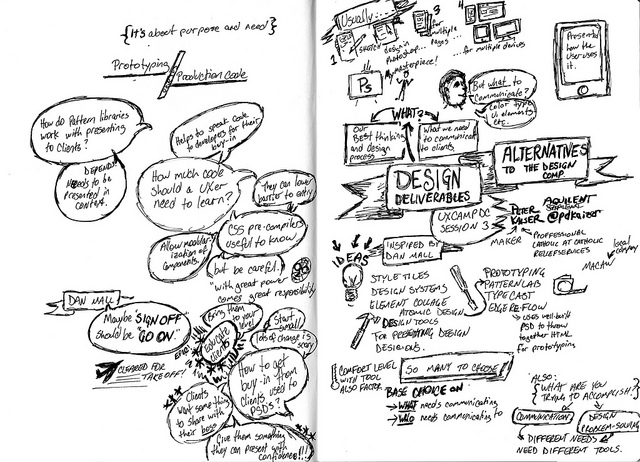 {It's about purpose and need}
Prototyping
Production Code
How do Pattern libraries
work with presenting
to Clients?
DEPENDS
Needs to be
presented in
context.
Helps to speak code
to developers for their
buy-in
How much code
should a UXer
need to learn?
They can lower
barrier to entry
CSS pre-compilers
useful to know.
Allow modular-
ization of
Components.
but be careful.
"with great power
comes great responsibility
DAN MALL
Maybe "SIGN OFF"
should be "GO ON"
CLEARED FOR
TAKEOFF!
Bring them
to your
level
Educate
Clients
Start
small!
Lots of change is
scary
How to get
buy-in from
Clients used to
PSDs?
Clients
want something
to share with
their boss
Give them something
they can present with
confidence!!!
Usually...
1
SKETCH
design in
Photoshop...
My masterpiece!
3
for
multiple
pages...
4
...for multiple devices
Ps
But what to
Communicate?
Color, type,
UI elements
etc.
Presents
how the
User uses
it.
WHAT?
Our
BEST thinking
and design
process
What we need
to communicate
to clients.
DESIGN
DELIVERABLES
ALTERNATIVES
TO THE DESIGN
COMP.
UXCAMPDC
SESSION 3
PETER
KAISER
AQUILENT
@pdkaiser
MAKER
PROFESSIONAL
CATHOLIC AT CATHOLIC
RELIEF SERVICES
local
company
INSPIRED BY
DAN MALL
IDEAS
STYLE TILES
DESIGN SYSTEMS
ELEMENT COLLAGE
ATOMIC DESIGN
DESIGN TOOLS
FOR PRESENTING DESIGN
DECISIONS.
PROTOTYPING
PATTERN LAB
TYPECAST
EDGE REFLOW
uses well-built
PSD to throw
together HTML
for prototyping
COMFORT LEVEL
WITH TOOL
ALSO FACTOR
SO MANY TO CHOOSE!
BASE CHOICE ON
WHAT needs communicating
WHO needs communicating to
ALSO:
{WHAT ARE YOU
TRYING TO ACCOMPLISH?}
COMMUNICATION
DESIGN
PROBLEM-SOLVING
DIFFERENT NEEDS
NEED DIFFERENT TOOLS.